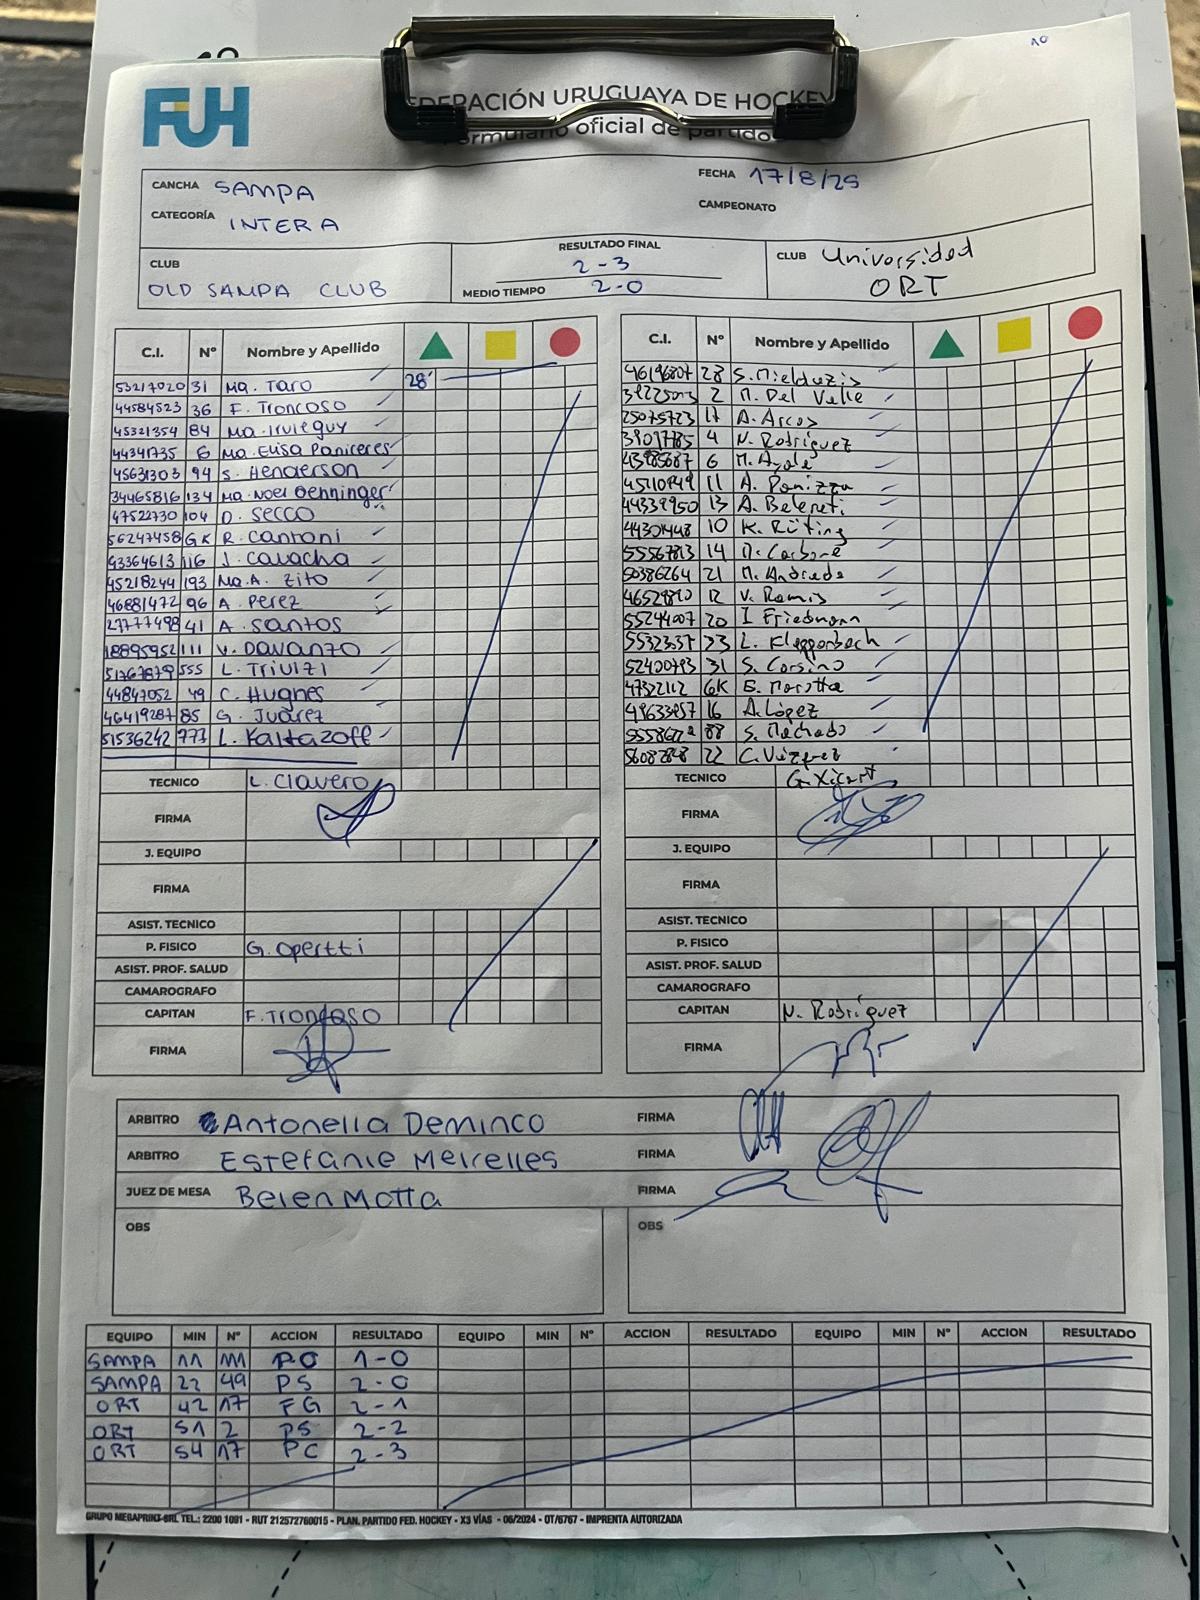 FUH
FEDERACIÓN URUGUAYA DE HOCKEY
Formulario oficial de partido
CANCHA SAMPA
FECHA 17/8/25
CATEGORÍA INTER A
CAMPEONATO
CLUB OLD SAMPA CLUB
RESULTADO FINAL 2-3
MEDIO TIEMPO 2-0
CLUB Universidad ORT
C.I. Nº Nombre y Apellido
53217020 31 Ma. Taro 28'
44584523 36 F. Troncoso
45321354 84 Ma. Irvleguy
44341735 6 Ma. Elisa Paniceres
45631303 94 S. Henderson
34465816 134 Ma. Noel Oenninger
47522730 104 D. Secco
56247458 GK R. Cantoni
93364613 116 J. Cavacha
45218244 193 Ma. A. Zito
46881472 96 A. Perez
27777498 41 A. Santos
18895952 111 V. Davanzo
51767879 555 L. Trivizi
44847052 49 C. Hughes
46419287 85 G. Juárez
51536242 777 L. Kaitazoff
TECNICO L. Clavero
FIRMA
J. EQUIPO
FIRMA
ASIST. TECNICO
P. FISICO G. Opertti
ASIST. PROF. SALUD
CAMAROGRAFO
CAPITAN F. Troncoso
FIRMA
C.I. Nº Nombre y Apellido
46196807 28 S.
2 M. Del Valle
25075723 17 A. Arcos
39017785 4 N. Rodríguez
43985687 6 M. Ayala
45710949 11 A. Panizza
44339950 13 A.
44301448 10 K. Rüting
55567813 14 M. Carbone
50386264 21 M. Andrade
46529810 12 V. Ramis
55244007 20 I Friedmann
55323337 23 L. Klepperbach
52400793 31 S. Corsino
47322112 GK B. Marotta
49633957 16 A. López
88 S. Machado
56082848 22 C. Vázquez
TECNICO G. Xicart
FIRMA
J. EQUIPO
FIRMA
ASIST. TECNICO
P. FISICO
ASIST. PROF. SALUD
CAMAROGRAFO
CAPITAN N. Rodríguez
FIRMA
ARBITRO Antonella Deminco FIRMA
ARBITRO Estefanie Meirelles FIRMA
JUEZ DE MESA Belen Motta FIRMA
OBS
OBS
EQUIPO MIN Nº ACCION RESULTADO EQUIPO MIN Nº ACCION RESULTADO EQUIPO MIN Nº ACCION RESULTADO
SAMPA 11 111 PC 1-0
SAMPA 22 49 PS 2-0
ORT 42 17 FG 2-1
ORT 51 2 PS 2-2
ORT 54 17 PC 2-3
GRUPO MEGAPRINT SRL TEL.: 2200 1091 - RUT 212572760015 - PLAN. PARTIDO FED. HOCKEY - X3 VÍAS - 06/2024 - OT/6767 - IMPRENTA AUTORIZADA